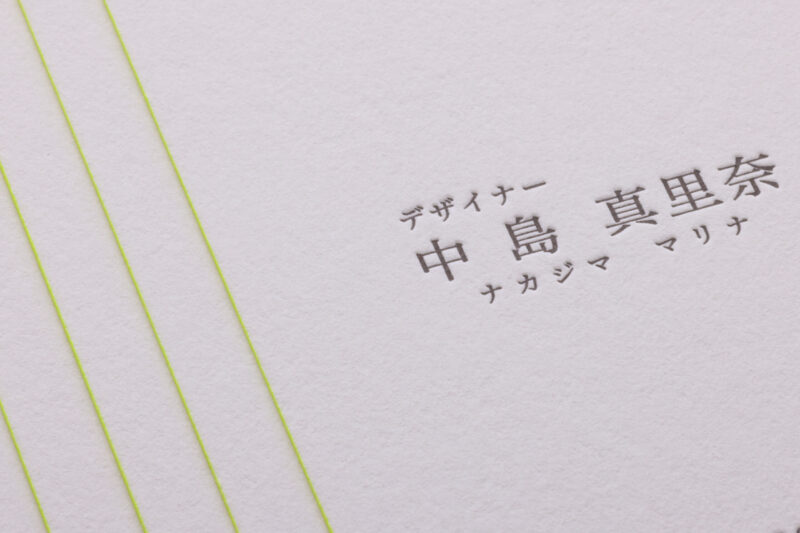 デザイナー
中島 真里奈
ナカジマ マリナ